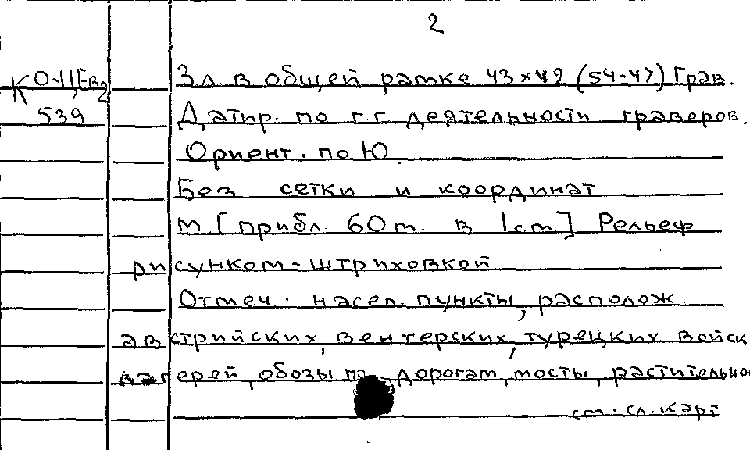 2
К О-11,Ев2
3 л. в общей рамке 43×49 (54-47) Грав.
539
Датир. по г.г. деятельности граверов.
Ориент. по Ю.
Без сетки и координат
м. [прибл. 60 m. в 1 cm] Рельеф
рисунком-штриховкой
Отмеч. насел. пункты, располож
австрийских, венгерских, турецких войск
лагерей, обозы по дорогам, мосты, растительнос
см. сл. карт